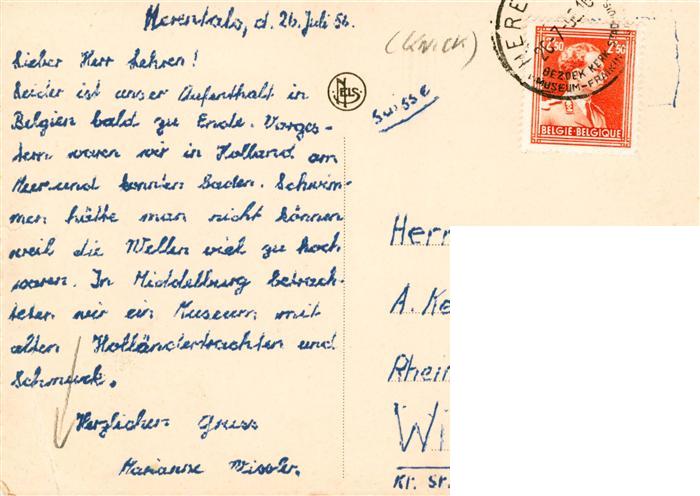 Herentals, d. 26. Juli 56.
Lieber Herr Lehren!
Leider ist unser Aufenthalt in
Belgien bald zu Ende. Vorges-
tern waren wir in Holland am
Meer und konnten baden. Schwim-
men hätte man nicht können
weil die Wellen viel zu hoch
waren. In Middelburg betrach-
teten wir ein Museum mit
alten Holländertrachten und
Schmuck.
Herzlichen Gruss
Marianne Wissler.
(KNICK)
NELS
Suisse
HERE
BEZOEK KERK
MUSEUM-FRAIKIN
2.50 2.50
BELGIE-BELGIQUE
Herrn
A. Ke
Rhein
Wi
Kr. St.